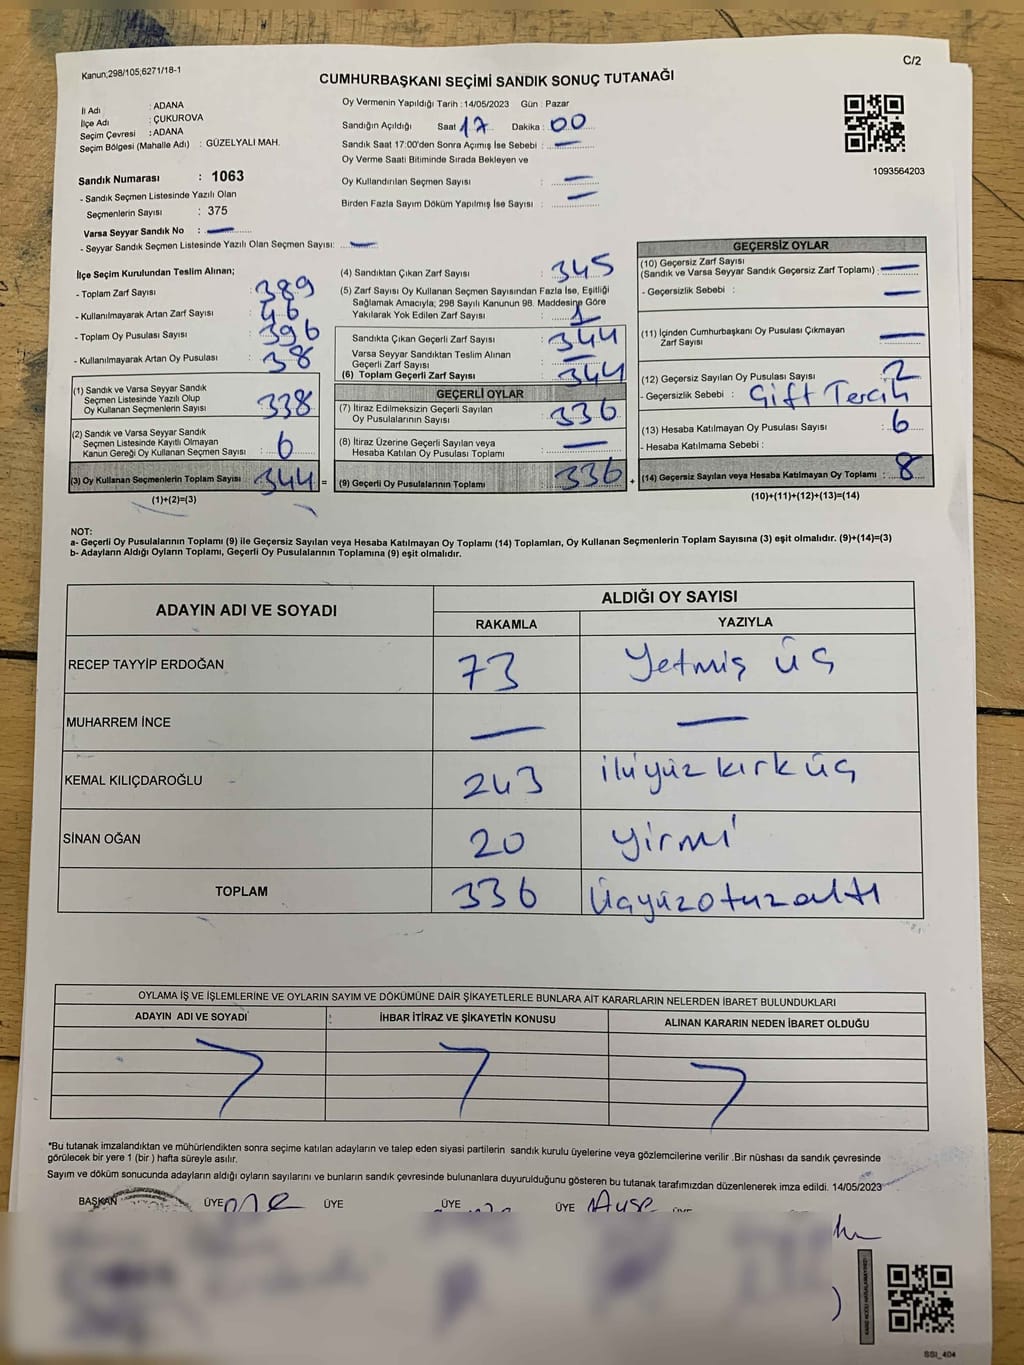 Kanun;298/105;6271/18-1
C/2
CUMHURBAŞKANI SEÇİMİ SANDIK SONUÇ TUTANAĞI
İl Adı : ADANA
İlçe Adı : ÇUKUROVA
Seçim Çevresi : ADANA
Seçim Bölgesi (Mahalle Adı) : GÜZELYALI MAH.
Sandık Numarası : 1063
- Sandık Seçmen Listesinde Yazılı Olan
Seçmenlerin Sayısı : 375
Varsa Seyyar Sandık No : —
- Seyyar Sandık Seçmen Listesinde Yazılı Olan Seçmen Sayısı: —
Oy Vermenin Yapıldığı Tarih :14/05/2023 Gün : Pazar
Sandığın Açıldığı Saat 17 Dakika : 00
Sandık Saat 17:00'den Sonra Açımış İse Sebebi : —
Oy Verme Saati Bitiminde Sırada Bekleyen ve
Oy Kullandırılan Seçmen Sayısı : —
Birden Fazla Sayım Döküm Yapılmış İse Sayısı : —
1093564203
İlçe Seçim Kurulundan Teslim Alınan;
- Toplam Zarf Sayısı : 389
- Kullanılmayarak Artan Zarf Sayısı : 46
- Toplam Oy Pusulası Sayısı : 396
- Kullanılmayarak Artan Oy Pusulası : 38
(1) Sandık ve Varsa Seyyar Sandık
Seçmen Listesinde Yazılı Olup
Oy Kullanan Seçmenlerin Sayısı : 338
(2) Sandık ve Varsa Seyyar Sandık
Seçmen Listesinde Kayıtlı Olmayan
Kanun Gereği Oy Kullanan Seçmen Sayısı : 6
(3) Oy Kullanan Seçmenlerin Toplam Sayısı : 344 =
(1)+(2)=(3)
(4) Sandıktan Çıkan Zarf Sayısı : 345
(5) Zarf Sayısı Oy Kullanan Seçmen Sayısından Fazla İse, Eşitliği
Sağlamak Amacıyla; 298 Sayılı Kanunun 98. Maddesine Göre
Yakılarak Yok Edilen Zarf Sayısı : 1
Sandıkta Çıkan Geçerli Zarf Sayısı : 344
Varsa Seyyar Sandıktan Teslim Alınan
Geçerli Zarf Sayısı : —
(6) Toplam Geçerli Zarf Sayısı : 344
GEÇERLİ OYLAR
(7) İtiraz Edilmeksizin Geçerli Sayılan
Oy Pusulalarının Sayısı : 336
(8) İtiraz Üzerine Geçerli Sayılan veya
Hesaba Katılan Oy Pusulası Toplamı : —
(9) Geçerli Oy Pusulalarının Toplamı : 336 +
GEÇERSİZ OYLAR
(10) Geçersiz Zarf Sayısı
(Sandık ve Varsa Seyyar Sandık Geçersiz Zarf Toplamı) : —
- Geçersizlik Sebebi : —
(11) İçinden Cumhurbaşkanı Oy Pusulası Çıkmayan
Zarf Sayısı : —
(12) Geçersiz Sayılan Oy Pusulası Sayısı : 2
- Geçersizlik Sebebi : Çift Tercih
(13) Hesaba Katılmayan Oy Pusulası Sayısı : 6
- Hesaba Katılmama Sebebi :
(14) Geçersiz Sayılan veya Hesaba Katılmayan Oy Toplamı : 8
(10)+(11)+(12)+(13)=(14)
NOT:
a- Geçerli Oy Pusulalarının Toplamı (9) ile Geçersiz Sayılan veya Hesaba Katılmayan Oy Toplamı (14) Toplamları, Oy Kullanan Seçmenlerin Toplam Sayısına (3) eşit olmalıdır. (9)+(14)=(3)
b- Adayların Aldığı Oyların Toplamı, Geçerli Oy Pusulalarının Toplamına (9) eşit olmalıdır.
ADAYIN ADI VE SOYADI
ALDIĞI OY SAYISI
RAKAMLA YAZIYLA
RECEP TAYYİP ERDOĞAN 73 Yetmiş üç
MUHARREM İNCE — —
KEMAL KILIÇDAROĞLU 243 ikiyüz kırk üç
SİNAN OĞAN 20 yirmi
TOPLAM 336 Üçyüzotuzaltı
OYLAMA İŞ VE İŞLEMLERİNE VE OYLARIN SAYIM VE DÖKÜMÜNE DAİR ŞİKAYETLERLE BUNLARA AİT KARARLARIN NELERDEN İBARET BULUNDUKLARI
ADAYIN ADI VE SOYADI İHBAR İTİRAZ VE ŞİKAYETİN KONUSU ALINAN KARARIN NEDEN İBARET OLDUĞU
*Bu tutanak imzalandıktan ve mühürlendikten sonra seçime katılan adayların ve talep eden siyasi partilerin sandık kurulu üyelerine veya gözlemcilerine verilir .Bir nüshası da sandık çevresinde
görülecek bir yere 1 (bir ) hafta süreyle asılır.
Sayım ve döküm sonucunda adayların aldığı oyların sayılarını ve bunların sandık çevresinde bulunanlara duyurulduğunu gösteren bu tutanak tarafımızdan düzenlenerek imza edildi. 14/05/2023
BAŞKAN ÜYE ÜYE ÜYE ÜYE
SSI_404